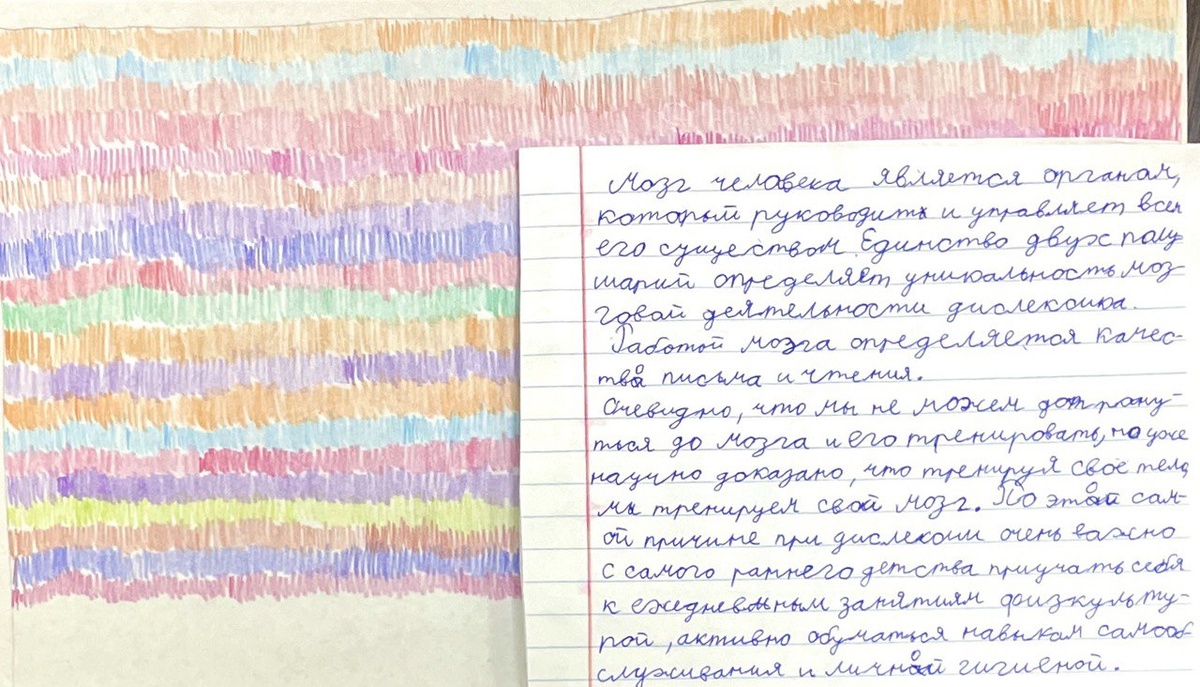 Мозг человека является органам,
который руководит и управляет всем
его существом. Единство двух полу
шарий определяет уникальность моз
говой деятельности дислексика.
Работой мозга определяется качес-
тво письма и чтения.
Очевидно, что мы не можем дотрону-
ться до мозга и его тренировать, но уже
научно доказано, что тренируя своё тело,
мы тренируем свой мозг. По этой сам-
ой причине при дислексии очень важно
с самого раннего детства приучать себя
к ежедневным занятиям физкульту-
рой, активно обучаться навыкам самооб
служивания и личной гигиеной.